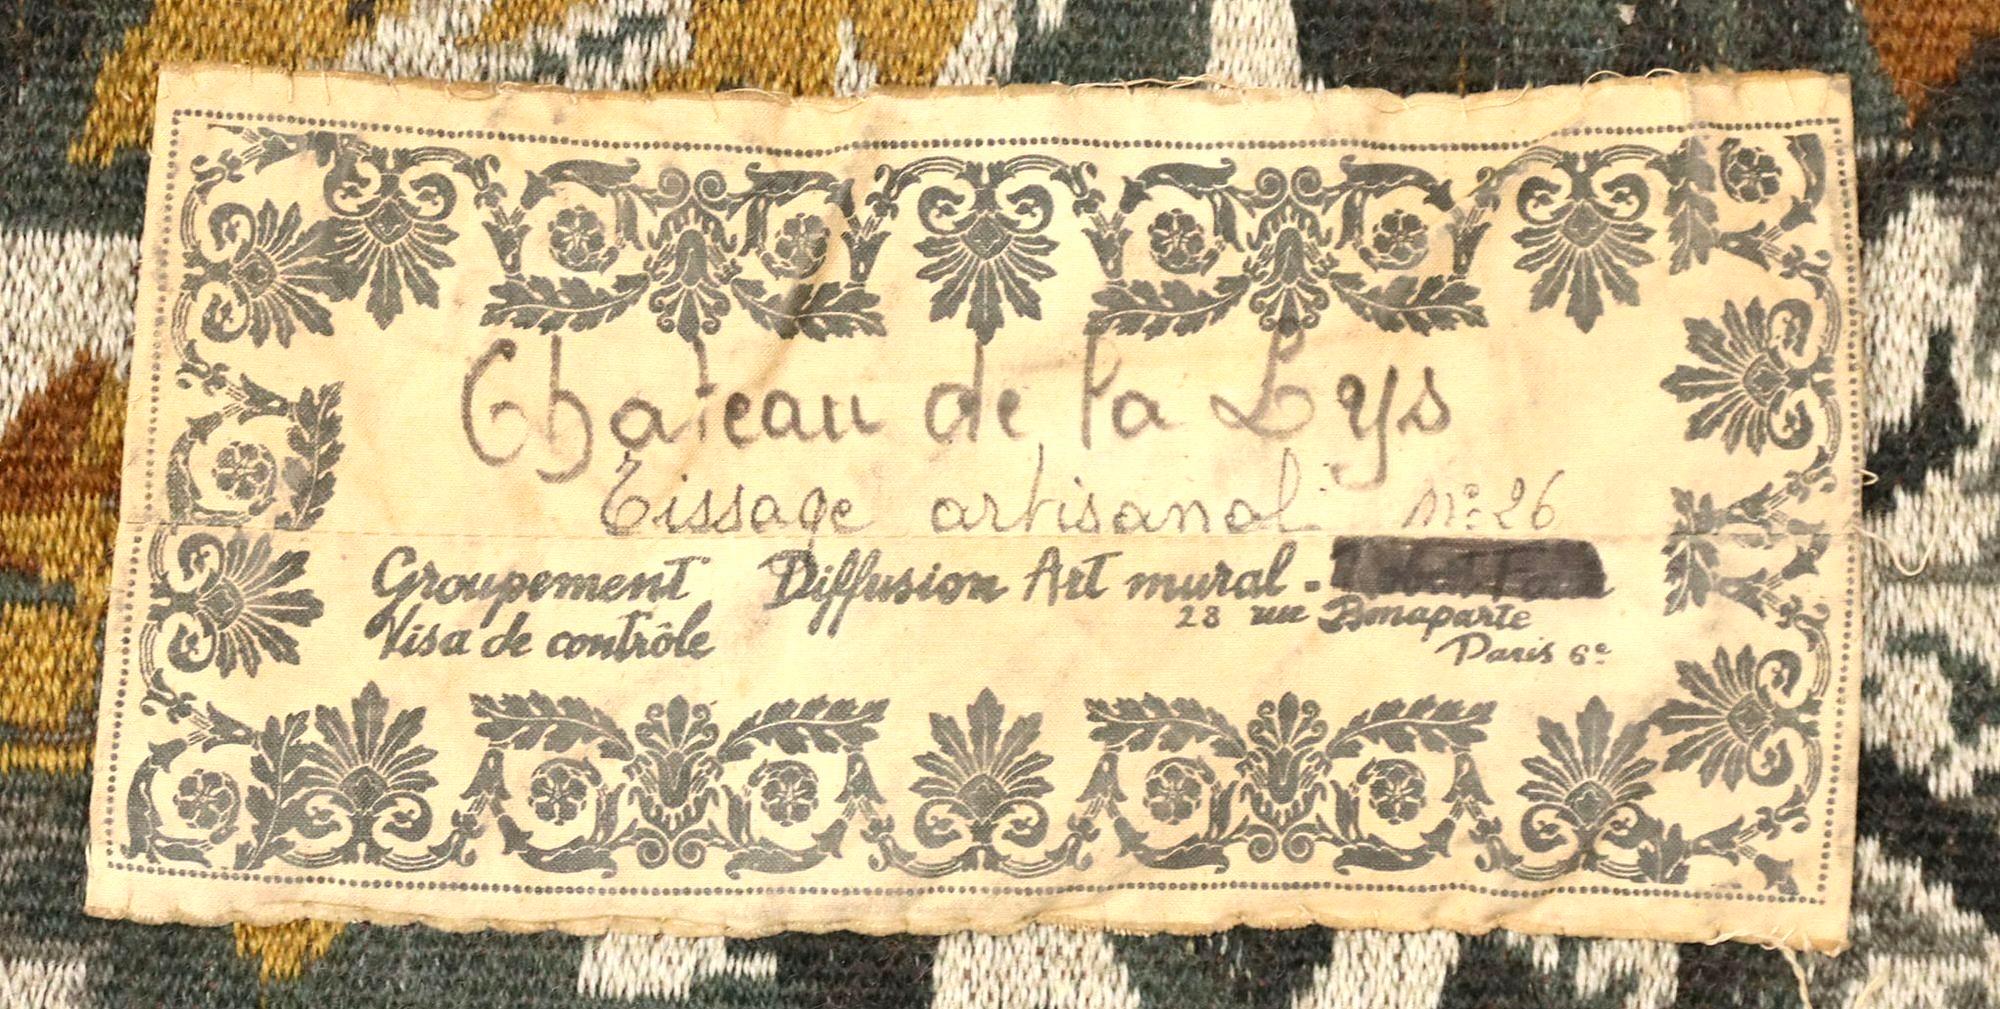 Chateau de la Lys
Tissage artisanal n° 26
Groupement Diffusion Art mural -
Visa de contrôle
28 rue Bonaparte
Paris 6e